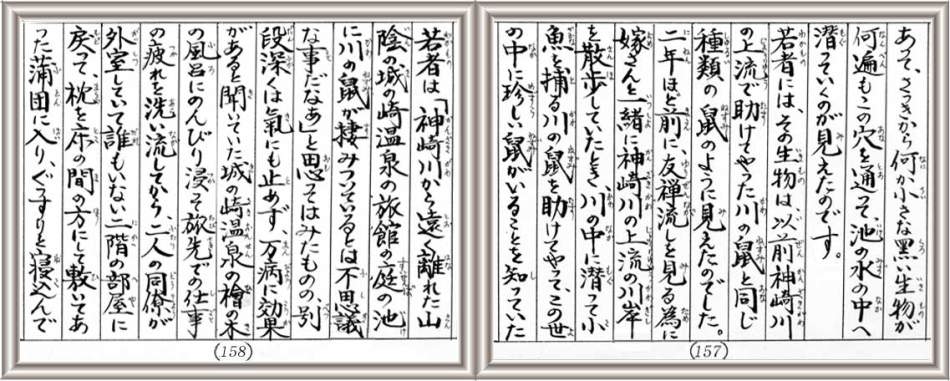 あって、さっきから何か小さな黒い生物が
何遍もこの穴を通って、池の水の中へ
潜っていくのが見えたのです。
若者には、その生物は以前神崎川
の上流で助けてやった川の鼠と同じ
種類の鼠のように見えたのでした。
二年ほど前に、友禅流しを見る為に
嫁さんと一緒に神崎川の上流の川岸
を散歩していたとき、川の中に潜って小
魚を捕る川の鼠を助けてやって、この世
の中に珍しい鼠がいることを知っていた
(157)
若者は「神崎川から遠く離れた山
陰の城の崎温泉の旅館の庭の池
に川の鼠が棲みついているとは不思議
な事だなあ」と思ってはみたものの、別
段深くは氣にも止めず、万病に効果
があると聞いていた城の崎温泉の檜の木
の風呂にのんびり浸って旅先での仕事
の疲れを洗い流してから、二人の同僚が
外室していて誰もいない二階の部屋に
戻って、枕を床の間の方にして敷いてあ
った蒲団に入り、ぐっすりと寝込んで
(158)